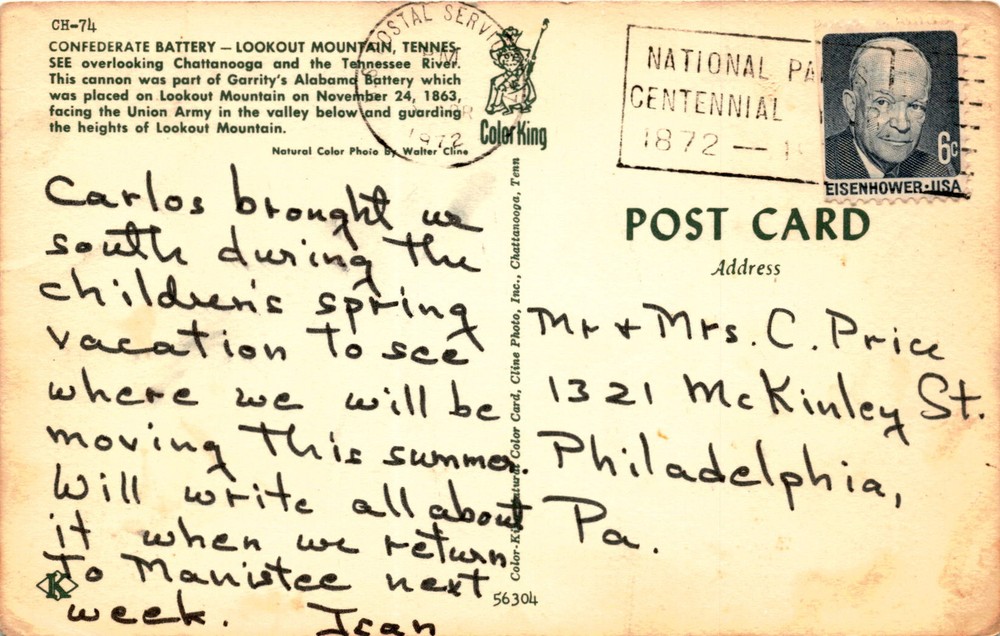 CH-74
CONFEDERATE BATTERY — LOOKOUT MOUNTAIN, TENNES-
SEE overlooking Chattanooga and the Tennessee River.
This cannon was part of Garrity's Alabama Battery which
was placed on Lookout Mountain on November 24, 1863,
facing the Union Army in the valley below and guarding
the heights of Lookout Mountain.
Natural Color Photo By Walter Cline
POSTAL SERVICE
PM
1972
Color King
NATIONAL PA
CENTENNIAL
1872 — 19
6c
EISENHOWER·USA
POST CARD
Address
Carlos brought us
south during the
children's spring
vacation to see
where we will be
moving this summer.
Will write all about
it when we return
to Manistee next
week. Jean
Mr + Mrs. C. Price
1321 McKinley St.
Philadelphia,
Pa.
Color-King Natural Color Card, Cline Photo, Inc., Chattanooga, Tenn
K
56304